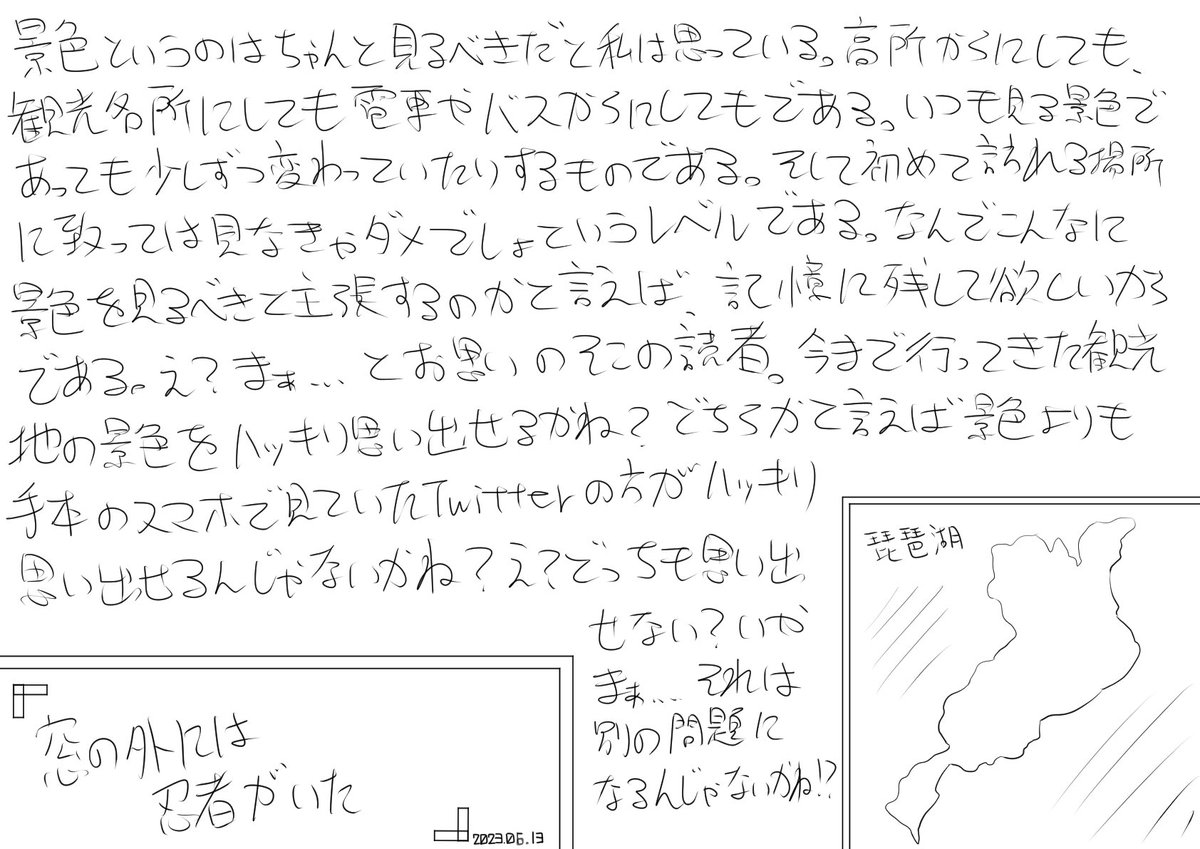 景色というのはちゃんと見るべきだと私は思っている。高所からにしても、
観光名所にしても電車やバスからにしてもである。いつも見る景色で
あっても少しずつ変わっていたりするものである。そして初めて訪れる場所
に致っては見なきゃダメでしょというレベルである。なんでこんなに
景色を見るべきと主張するのかと言えば、記憶に残して欲しいから
である。え?まぁ...とお思いのそこの読者。今まで行ってきた観光
地の景色をハッキリ思い出せるかね?どちらかと言えば景色よりも
手本のスマホで見ていたTwitterの方がハッキリ
思い出せるんじゃないかね?え?どっちも思い出
せない?いや
まぁ....それは
別の問題に
なるんじゃないかね!?
窓の外には
忍者がいた
2023.06.13
琵琶湖